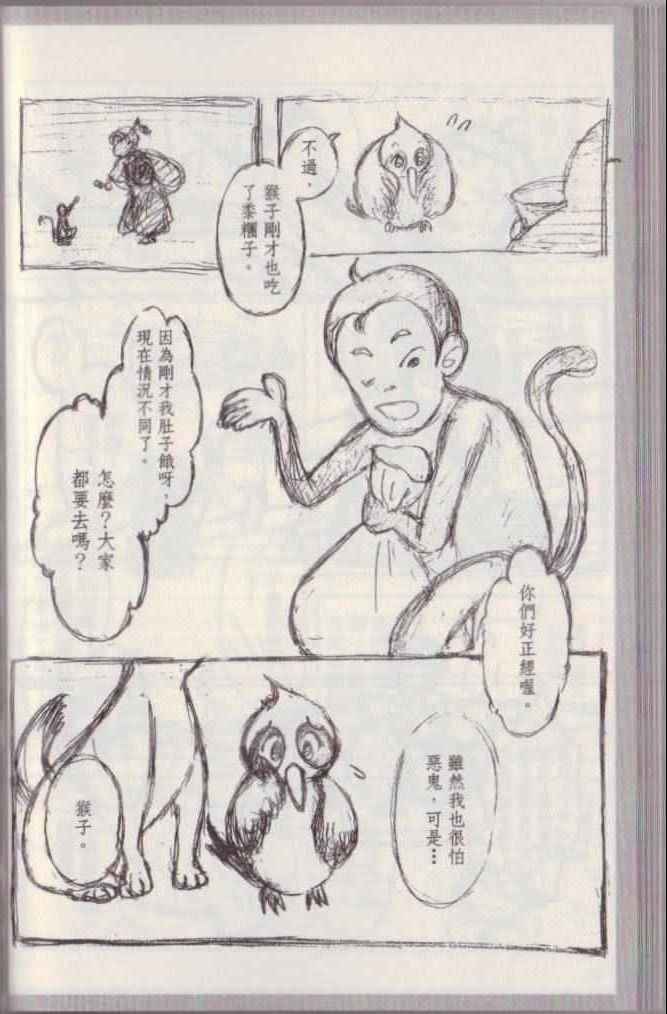 不過，
猴子剛才也吃
了黍糰子。
你們好正經喔。
因為剛才我肚子餓呀，
現在情況不同了。
怎麼？大家
都要去嗎？
雖然我也很怕
惡鬼，可是…
猴子。